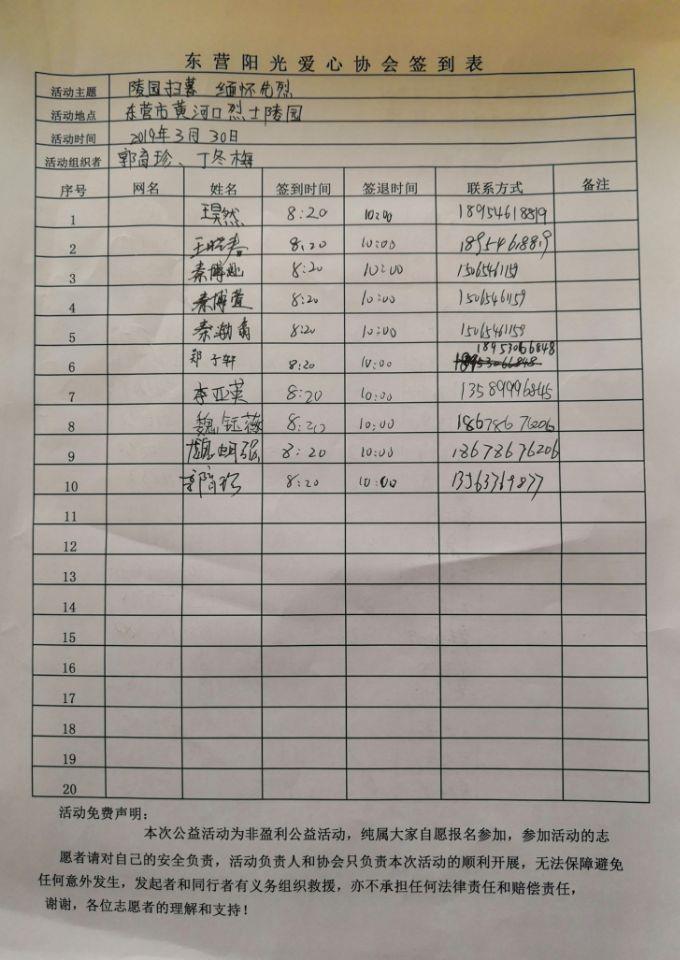 东营阳光爱心协会签到表
活动主题 陵园扫墓 缅怀先烈
活动地点 东营市黄河口烈士陵园
活动时间 2019年3月30日
活动组织者 郭育珍、丁冬梅
序号 网名 姓名 签到时间 签退时间 联系方式 备注
1 王昊然 8:20 10:00 18954618819
2 8:20 10:00 18954618819
3 秦博 8:20 10:00 15065461159
4 秦博萱 8:20 10:00 15065461159
5 秦渤 8:20 10:00 15065461159
6 郑子轩 8:20 10:00 18953066848
7 李亚英 8:20 10:00 13589996845
8 魏钰薇 8:20 10:00 18678676206
9 魏 强 8:20 10:00 18678676206
10 8:20 10:00 13563769877
11
12
13
14
15
16
17
18
19
20
活动免费声明：
本次公益活动为非盈利公益活动，纯属大家自愿报名参加，参加活动的志
愿者请对自己的安全负责，活动负责人和协会只负责本次活动的顺利开展，无法保障避免
任何意外发生，发起者和同行者有义务组织救援，亦不承担任何法律责任和赔偿责任，
谢谢，各位志愿者的理解和支持！